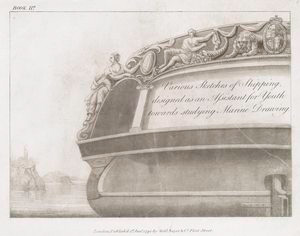 BOOK II.d
Various Sketches of Shipping,
designed as an Assistant for Youth
towards studying Marine Drawing.
London, Publish'd 1790 by Rob.t Sayer & C.o Fleet Street.